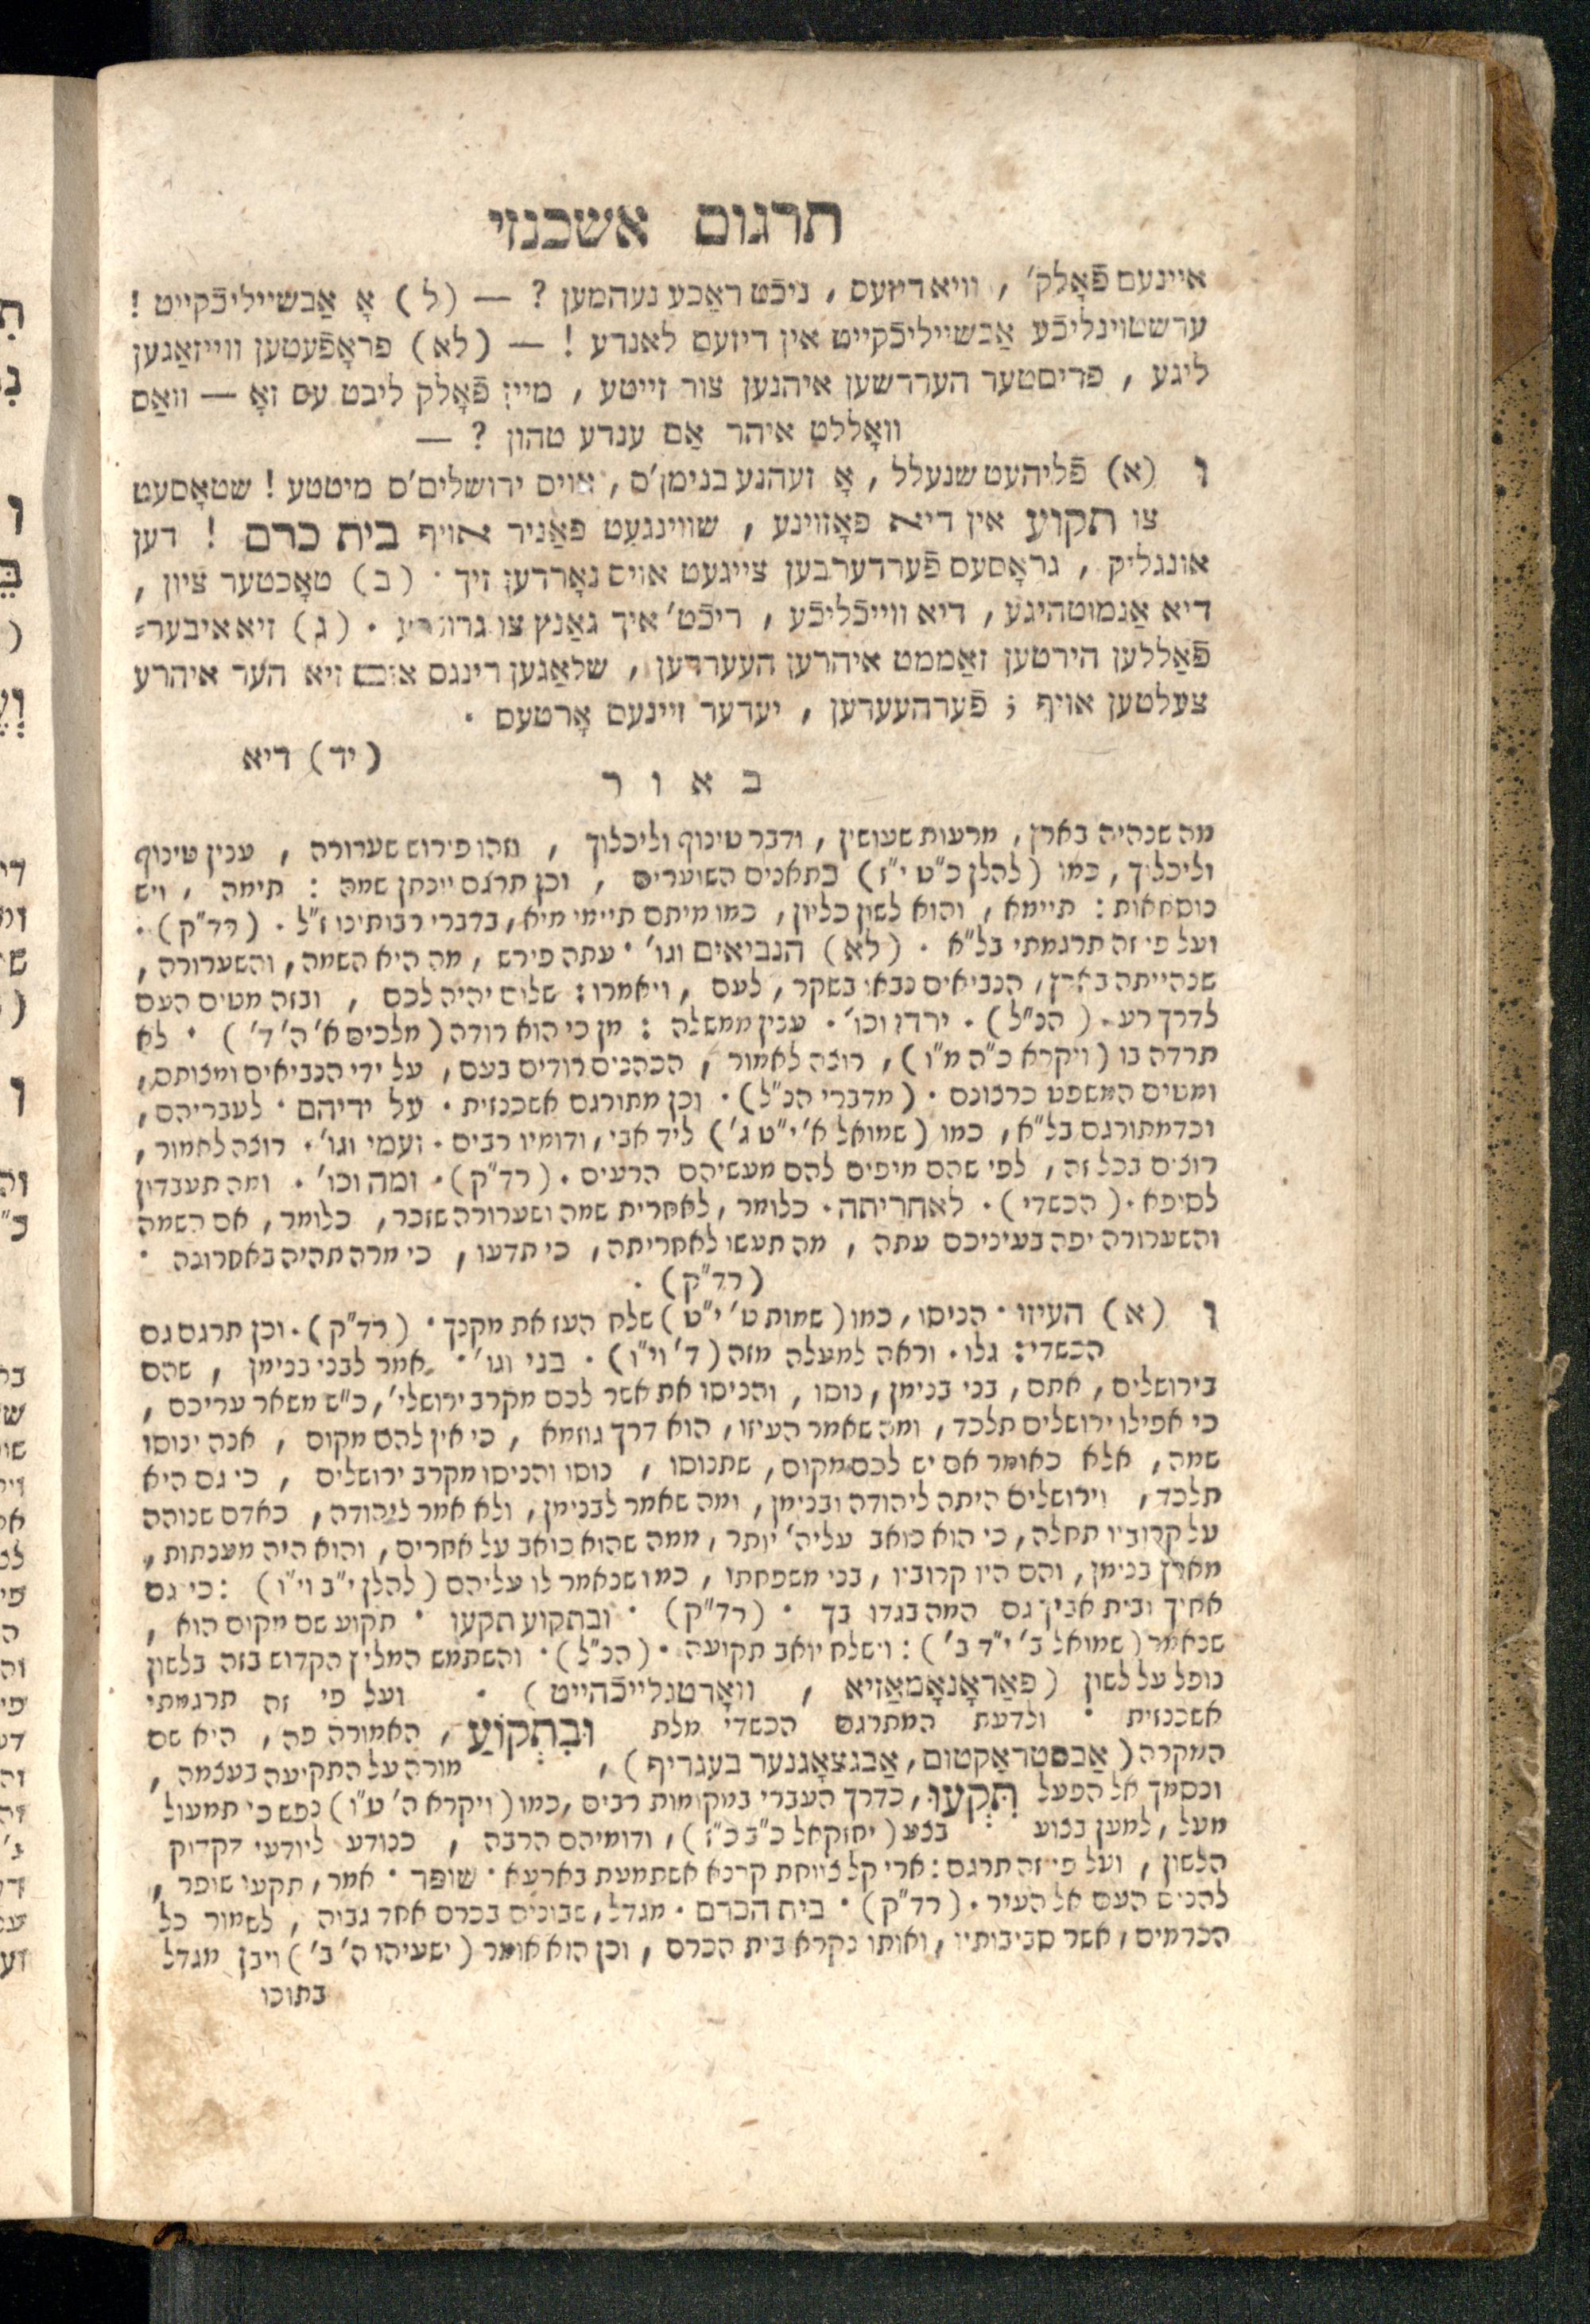 תרגום אשכנזי
איינעם פֿאָלק׳ , וויא דיזעס , ניכֿט ראַכע נעהמען ? — (ל) אָ אַבשייליכֿקייט !
ערשטוינליכֿע אַבשייליכֿקייט אין דיזעם לאנדע ! — (לא) פראָפֿעטען ווייזאַגען
ליגע , פריסטער הערדשען איהנען צור זייטע , מיין פֿאָלק ליבט עס זאָ — וואַס
וואָללט איהר אַם ענדע טהון ? —
ו (א) פֿליהעט שנעלל , אָ זעהנע בנימן׳ס , אויס ירושלים׳ס מיטטע ! שטאָסעט
צו תקוע אין דיא פאָזוינע , שווינגעט פאַניר אויף בית כרם ! דען
אונגליק , גראָסעס פֿערדערבען צייגעט אויס נאָרדען זיך · (ב) טאָכטער ציון ,
דיא אַנמוטהיגע , דיא ווייכֿליכֿע , ריכֿט׳ איך גאַנץ צו גרונדע · (ג) זיא איבער⸗
פֿאַללען הירטען זאַממט איהרען העערדען , שלאַגען רינגס אום זיא הער איהרע
צעלטען אויף ; פֿערהעערען , יעדער זיינעם אָרטעס ·
(יד) דיא
ב א ו ר
מה שנהיה בארץ, מרעות שעושין , ודבר טינוף וליכלוך , וזהו פירוש שערורה , ענין טינוף
וליכלוך , כמו (להלן כ"ט י"ז) כתאנים השוערים , וכן תרגם יונתן שמה : תימה , ויש
נוסחאות : תיימא , והוא לשון כליון , כמו מיתם תיימי מיא, בדברי רבותינו ז"ל · (רד"ק) ·
ועל פי זה תרגמתי בל"א · (לא) הנביאים וגו׳ · עתה פירש , מה היא השמה, והשערורה ,
שנהייתה בארץ, הנביאים נבאו בשקר, לעם , ויאמרו : שלום יהיה לכם , ובזה מטים העם
לדרך רע · (הנ"ל) · ירדו וכו׳ · ענין ממשלה : מן כי הוא רודה (מלכים א׳ ה׳ ד׳) · לא
תרדה בו (ויקרא כ"ה מ"ו) , רוצה לאמור , הכהנים רודים בעם , על ידי הנביאים ומצותם,
ומטים המשפט כרצונם · (מדברי הנ"ל) · וכן מתורגם אשכנזית · על ידיהם · לעבריהם ,
וכדמתורגם בל"א , כמו (שמואל א׳ י"ט ג׳) ליד אבי , ודומיו רבים · ועמי וגו׳ · רוצה לאמור ,
רוצים בכל זה , לפי שהם מיפים להם מעשיהם הרעים · (רד"ק) · ומה וכו׳ · ומה תעבדון
לסיפא · (הכשדי) · לאחריתה · כלומר , לאחרית שמה ושערורה שזכר , כלומר , אם השמה
והשערורה יפה בעיניכם עתה , מה תעשו לאחריתה , כי תדעו , כי מרה תהיה באחרונה ·
(רד"ק) ·
ו (א) העיזו · הניסו, כמו (שמות ט׳ י"ט) שלח העז את מקנך · (רד"ק) · וכן תרגם גם
הכשדי : גלו · וראה למעלה מזה (ד׳ וי"ו) · בני וגו׳ · אמר לבני בנימן , שהם
בירושלים , אתם , בני בנימן, נוסו , והניסו את אשר לכם מקרב ירושלי׳, כ"ש משאר עריכם ,
כי אפילו ירושלים תלכד , ומה שאמר העיזו , הוא דרך גוזמא , כי אין להם מקום , אנה ינוסו
שמה , אלא כאומר אם יש לכם מקום , שתנוסו , נוסו והניסו מקרב ירושלים , כי גם היא
תלכד , וירושלים היתה ליהודה ובנימן , ומה שאמר לבנימן, ולא אמר ליהודה , כאדם שנוהה
על קרוביו תחלה , כי הוא כואב עליה׳ יותר , ממה שהוא כואב על אחרים , והוא היה מענתות ,
מארץ בנימן , והם היו קרוביו , בני משפחתו , כמו שנאמר לו עליהם (להלן י"ב וי"ו) : כי גם
אחיך ובית אביך גם המה בגדו בך · (רד"ק) · ובתקוע תקעו · תקוע שם מקום הוא ,
שנאמר (שמואל ב׳ י"ד ב׳) : וישלח יואב תקועה · (הנ"ל) · והשתמש המליץ הקדוש בזה בלשון
נופל על לשון (פאַראָנאָמאַזיא , וואָרטגלייכֿהייט) · ועל פי זה תרגמתי
אשכנזית · ולדעת המתרגם הכשדי מלת וּבִתְקוֹעַ , האמורה פה , היא שם
המקרה (אַבסטראַקטום, אַבגצאָגנער בעגריף) , מורה על התקיעה בעצמה ,
ונסמך אל הפעל תִּקְעוּ , כדרך העברי במקומות רבים , כמו (ויקרא ה׳ ט"ו) נפש כי תמעול
מעל , למען בצוע בצע (יחזקאל כ"ב כ"ז) , ודומיהם הרבה , כנודע ליודעי דקדוק
הלשון , ועל פי זה תרגם : ארי קל צוחת קרנא אשתמעת בארעא · שופר · אמר , תקעו שופר ,
להכניס העם אל העיר · (רד"ק) · בית הכרם · מגדל , שבונים בכרם אחד גבוה , לשמור כל
הכרמים , אשר סביבותיו , ואותו נקרא בית הכרם , וכן הוא אומר (ישעיהו ה׳ ב׳) ויבן מגדל
בתוכו